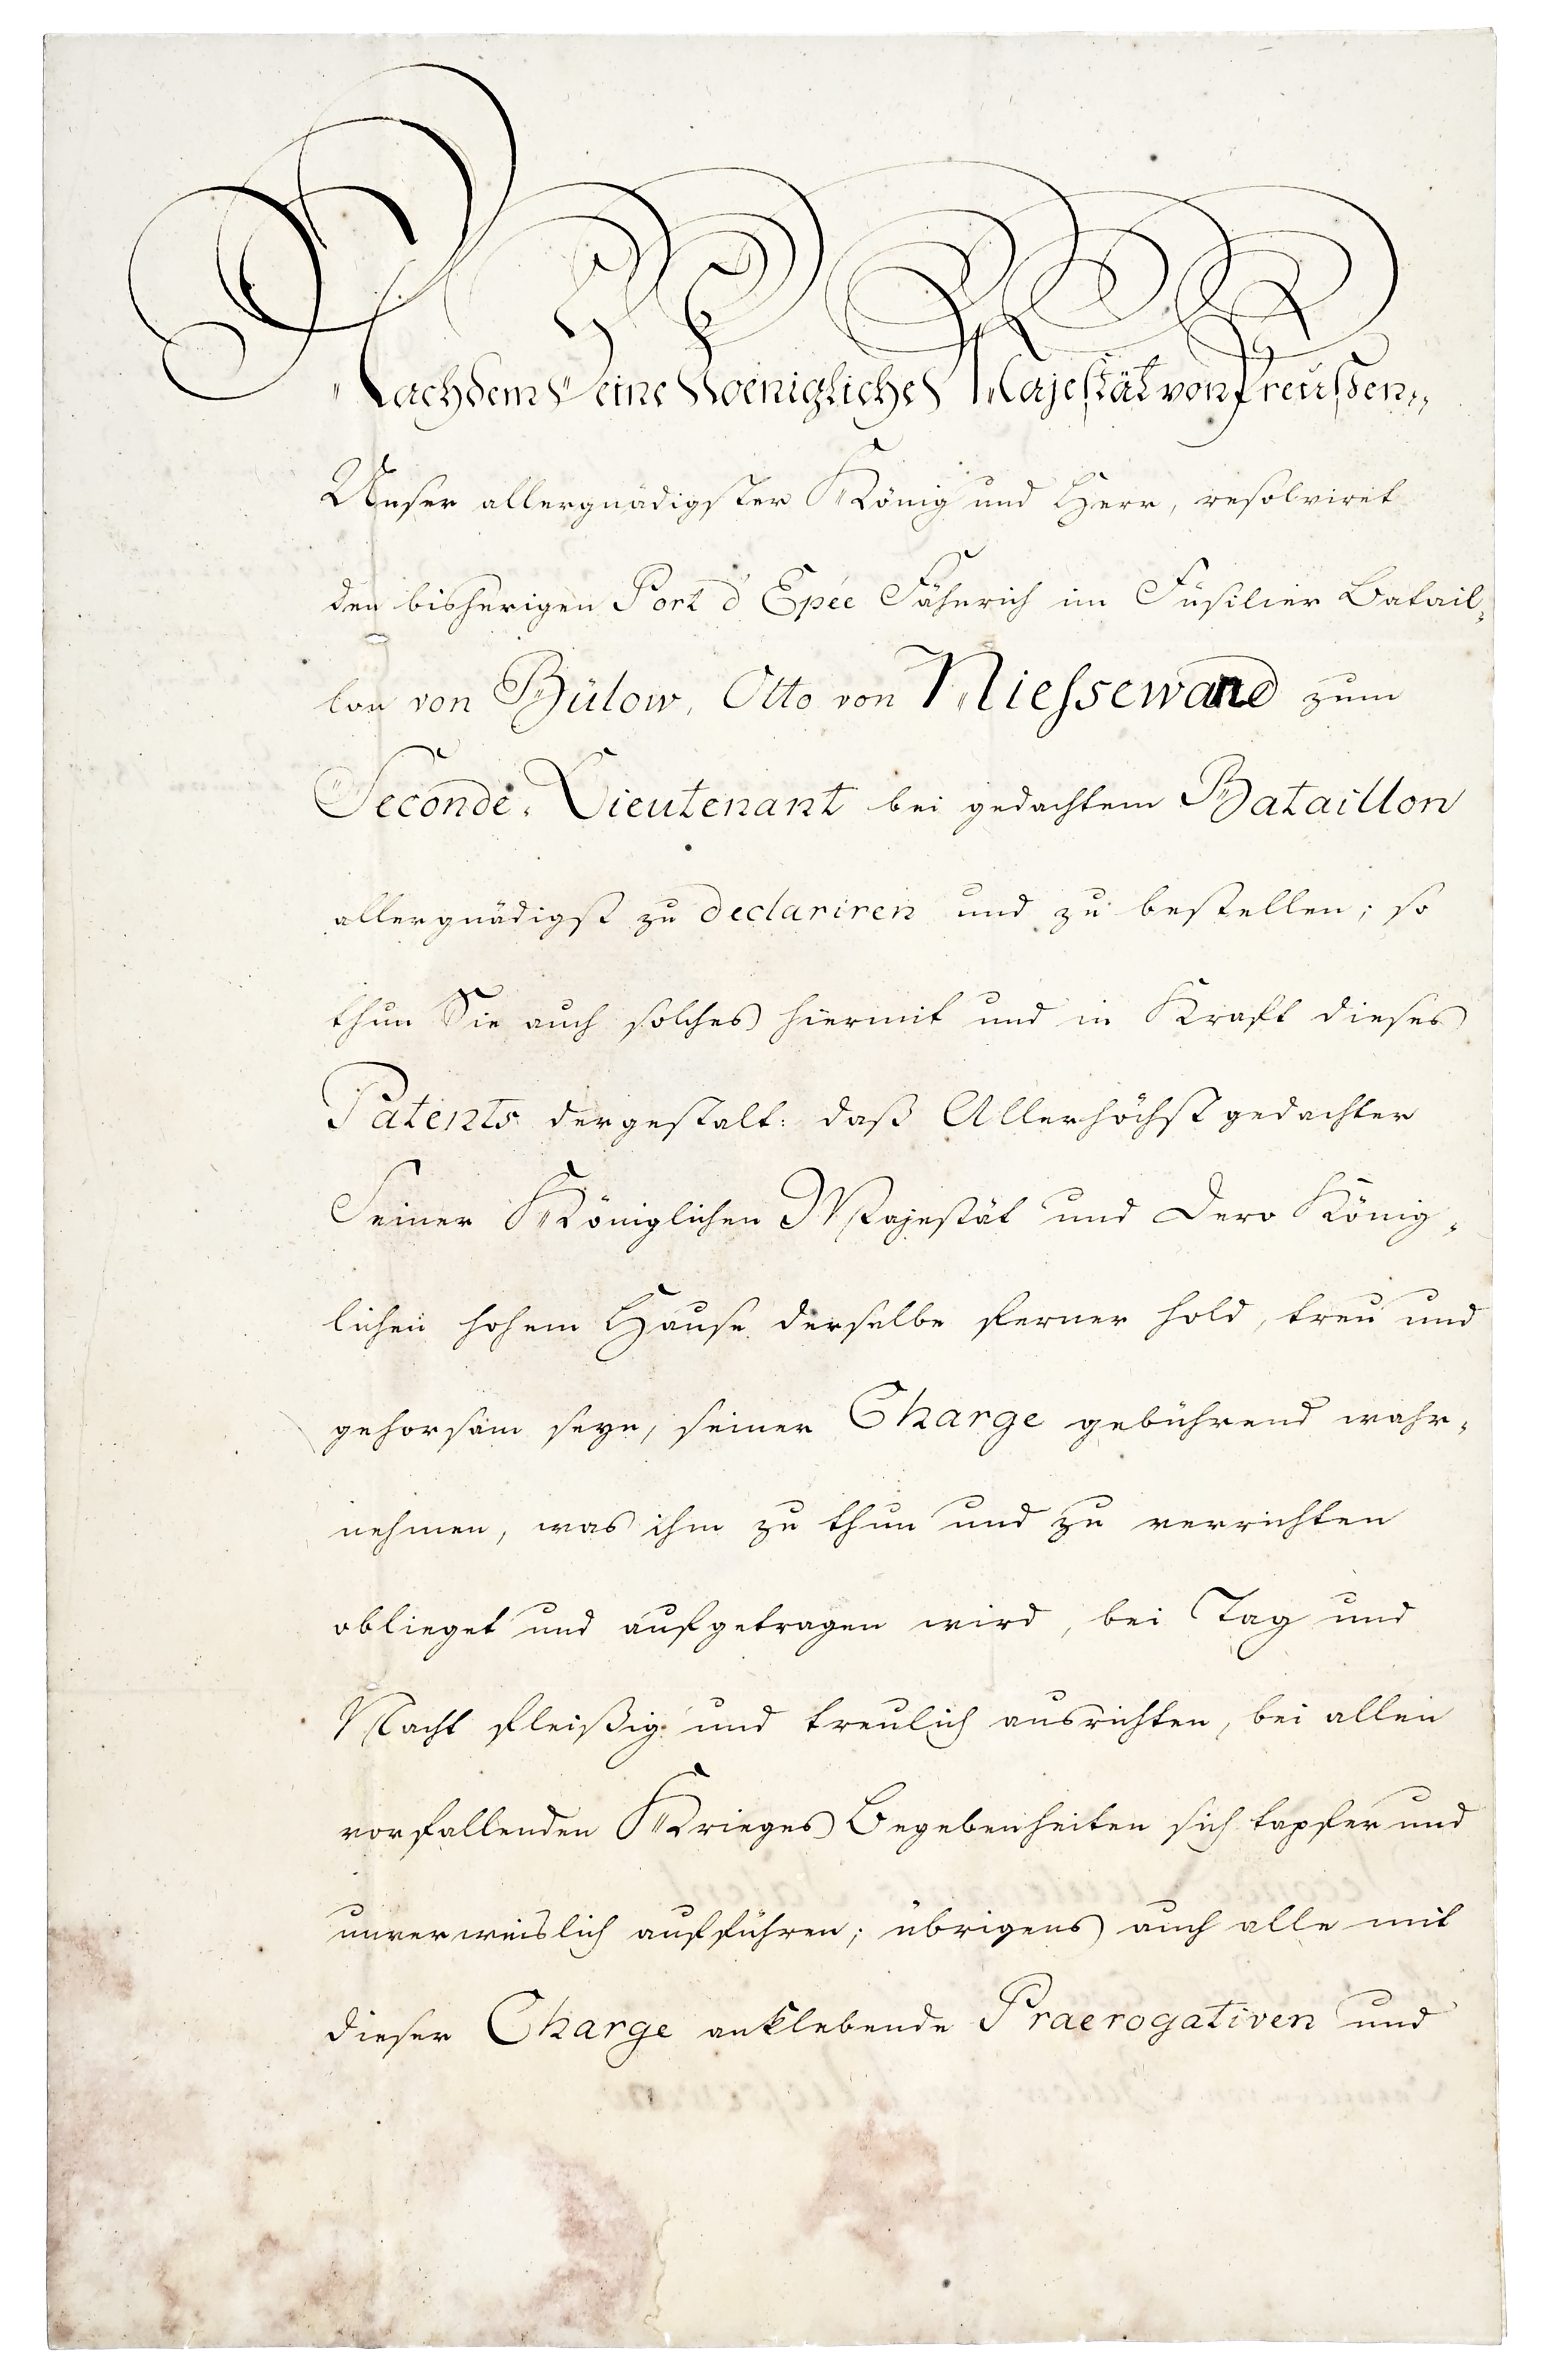 Nachdem Seine Koenigliche Majestät von Preußen,,
Unser allergnädigster König und Herr, resolviret
den bisherigen Port d' Epée Fähnrich im Füsilier Batail,
lon von Bülow, Otto von Niessewand zum
Seconde, Lieutenant bei gedachtem Bataillon
allergnädigst zu declariren und zu bestellen; so
thun Sie auch solches hiermit und in Kraft dieses
Patents dergestalt: daß Allerhöchst gedachter
Seiner Königlichen Majestät und Dero König,
lichen hohem Hause derselbe ferner hold, treu und
gehorsam seyn, seiner Charge gebührend wahr,
nehmen, was ihm zu thun und zu verrichten
oblieget und aufgetragen wird, bei Tag und
Nacht fleißig und treulich ausrichten, bei allen
vorfallenden Krieges Begebenheiten sich tapfer und
unverweislich aufführen; übrigens auch alle mit
dieser Charge anklebende Praerogativen und